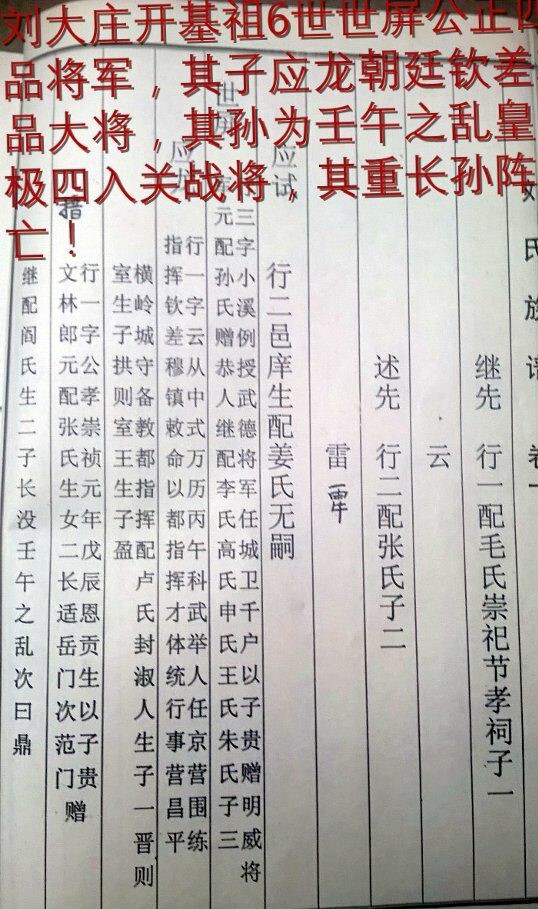 刘大庄开基祖6世世屏公正四
品将军，其子应龙朝廷钦差
品大将，其孙为壬午之乱皇
极四入关战将，其重长孙阵
亡！
氏族谱 卷一
继先 行一配毛氏崇祀节孝祠子一
云
述先 行二配张氏子二
雷
应试 行二邑庠生配姜氏无嗣
三字小溪例授武德将军任城卫千户以子贵赠明威将
元配孙氏赠恭人继配李氏高氏申氏王氏朱氏子三
行一字云从中式万历丙午科武举人任京营围练
指挥钦差穆镇敕命以都指挥才体统行事营昌平
横岭城守备教都指挥配卢氏封淑人生子一晋则
室生子拱则室王生子盈
措
行一字公孝崇祯元年戊辰恩贡生以子贵
文林郎元配张氏生女二长适岳门次范门赠
继配阎氏生二子长没壬午之乱次曰鼎